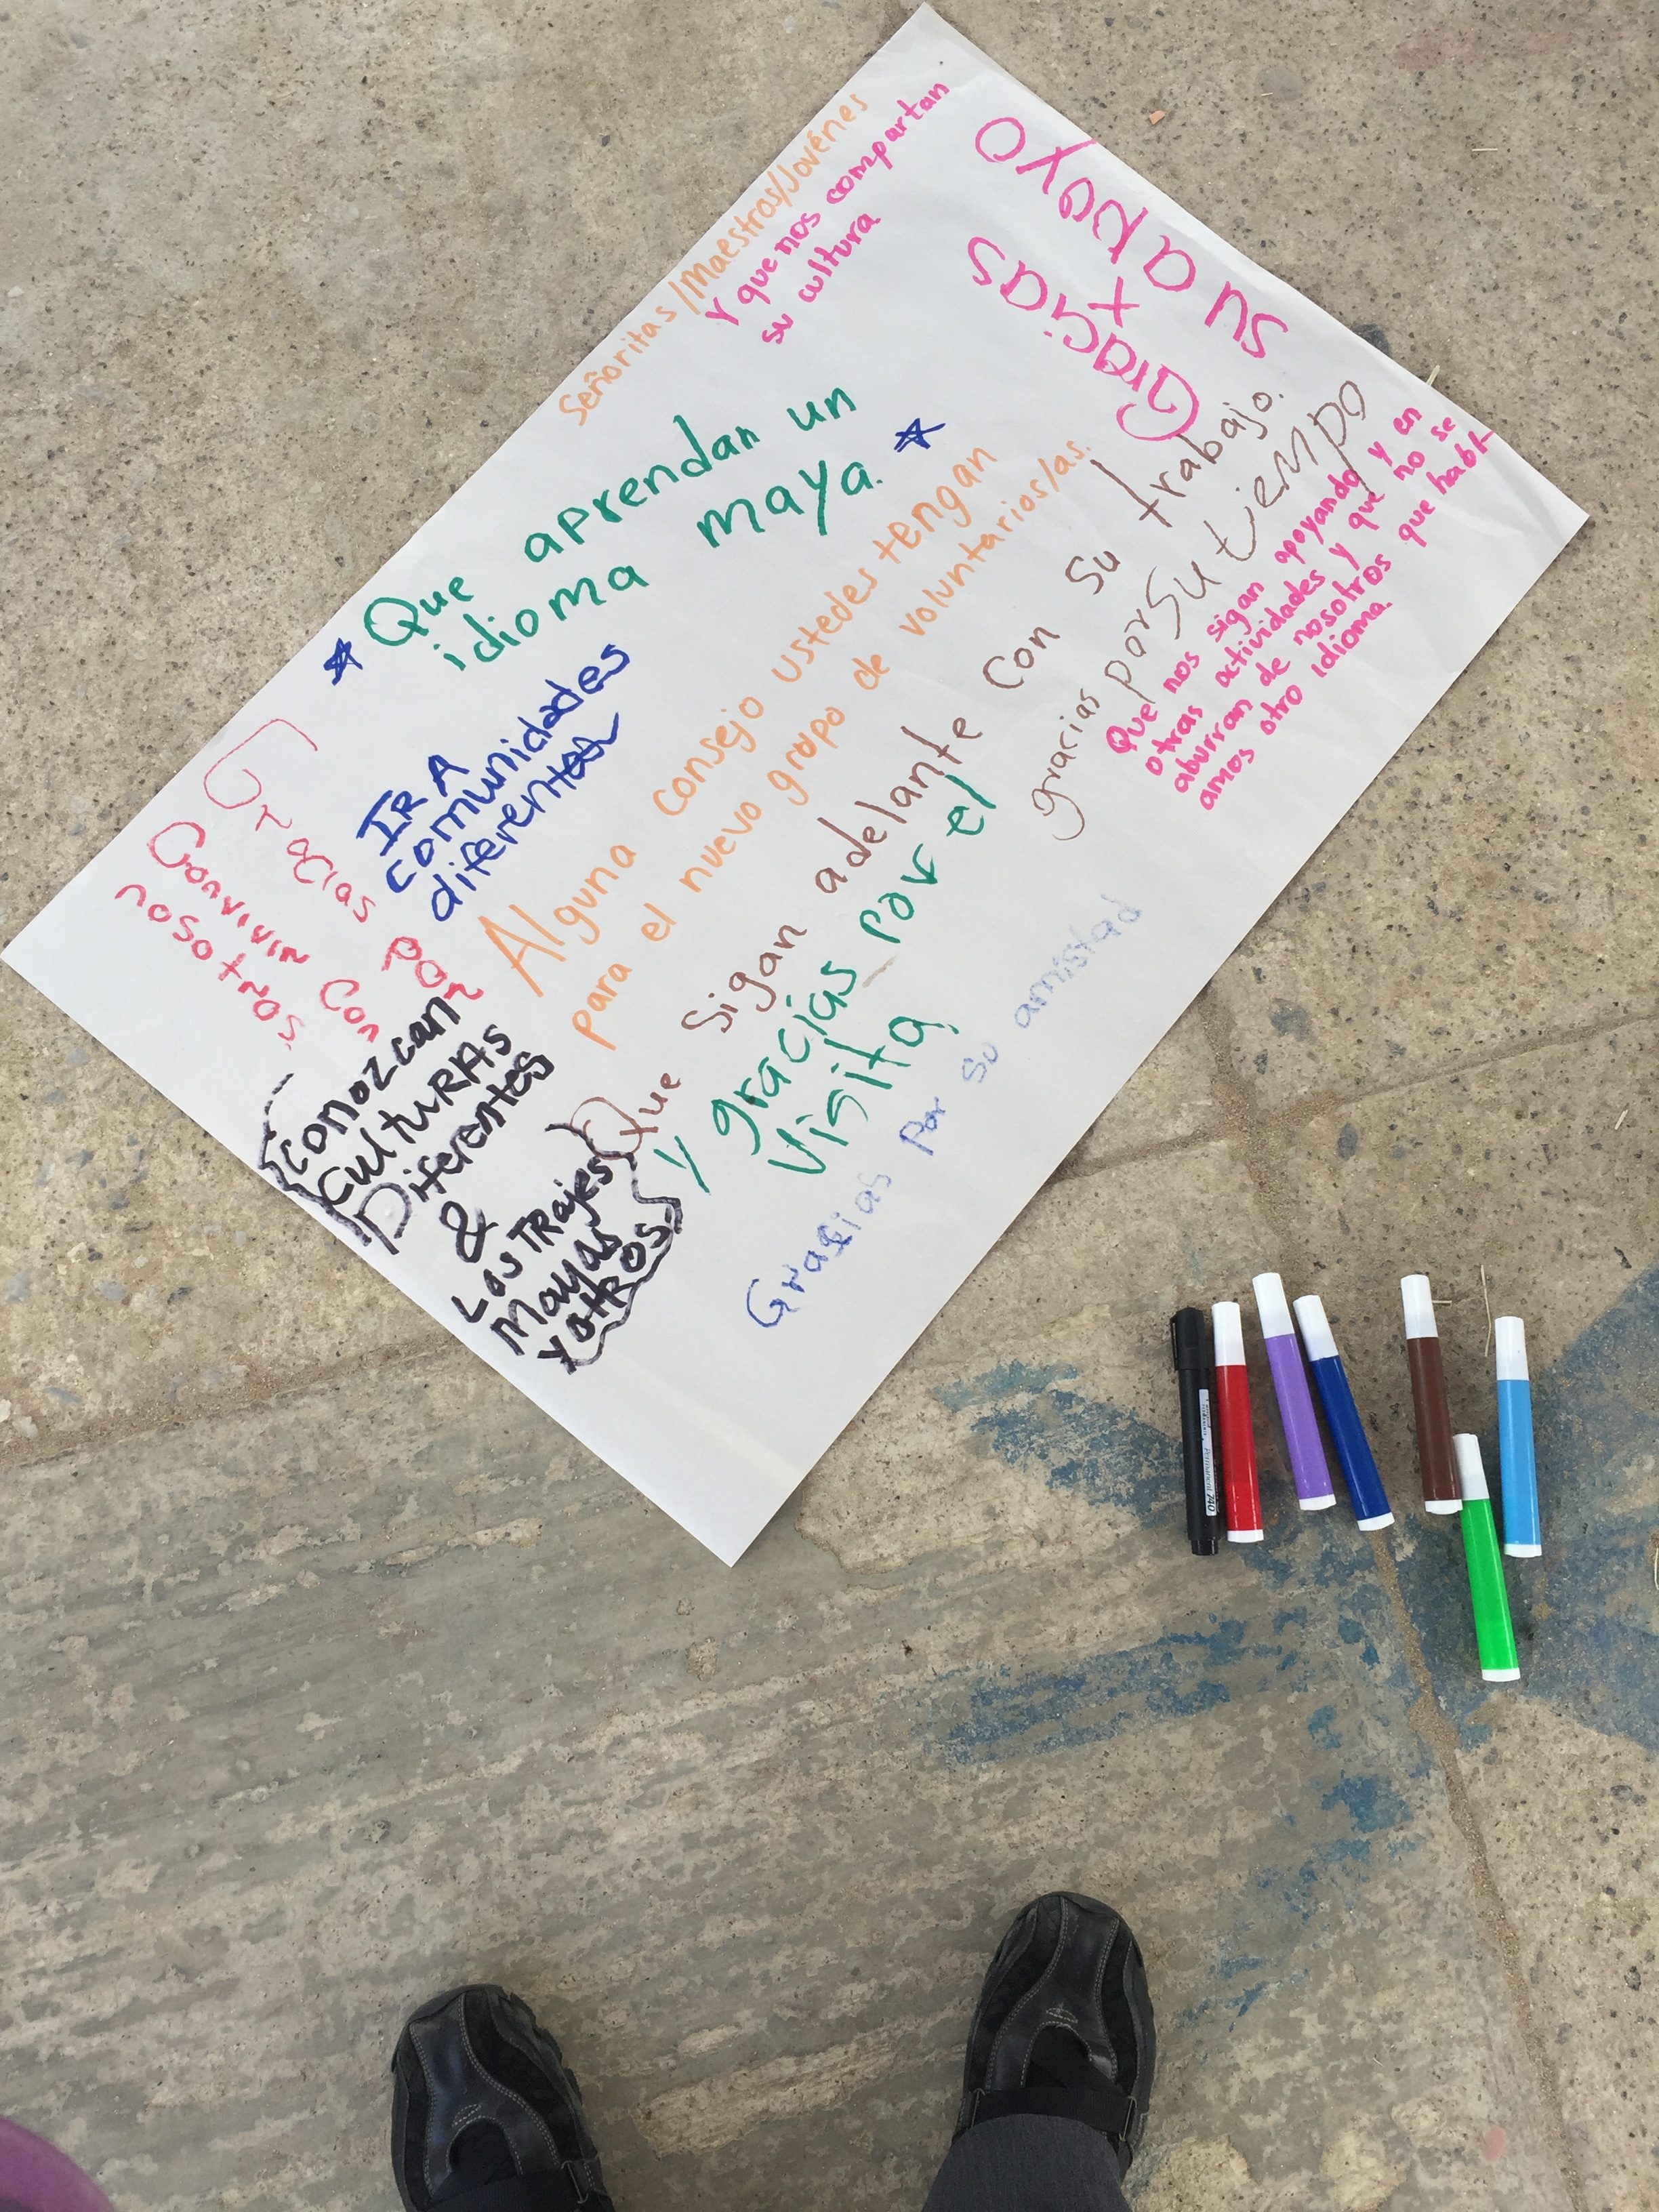 Señoritas/Maestros/Jovénes
Y que nos compartan
su cultura
Gracias
x
su apoyo
Que aprendan un
idioma maya.
IR A
comunidades
diferentes
Alguna consejo ustedes tengan
para el nuevo grupo de voluntarios/as.
Gracias por
Convivir con
nosotros
Conozcan
CultuRAs
Diferentes
&
Los TRajes
Mayas
Y otros.
Que Sigan adelante con su trabajo.
Y gracias por el
Visita
gracias por su tiempo
Que nos sigan apoyando y en
otras actividades y que no se
aburran de nosotros que habl-
amos otro idioma.
Gracias por su amistad
Permanent 740